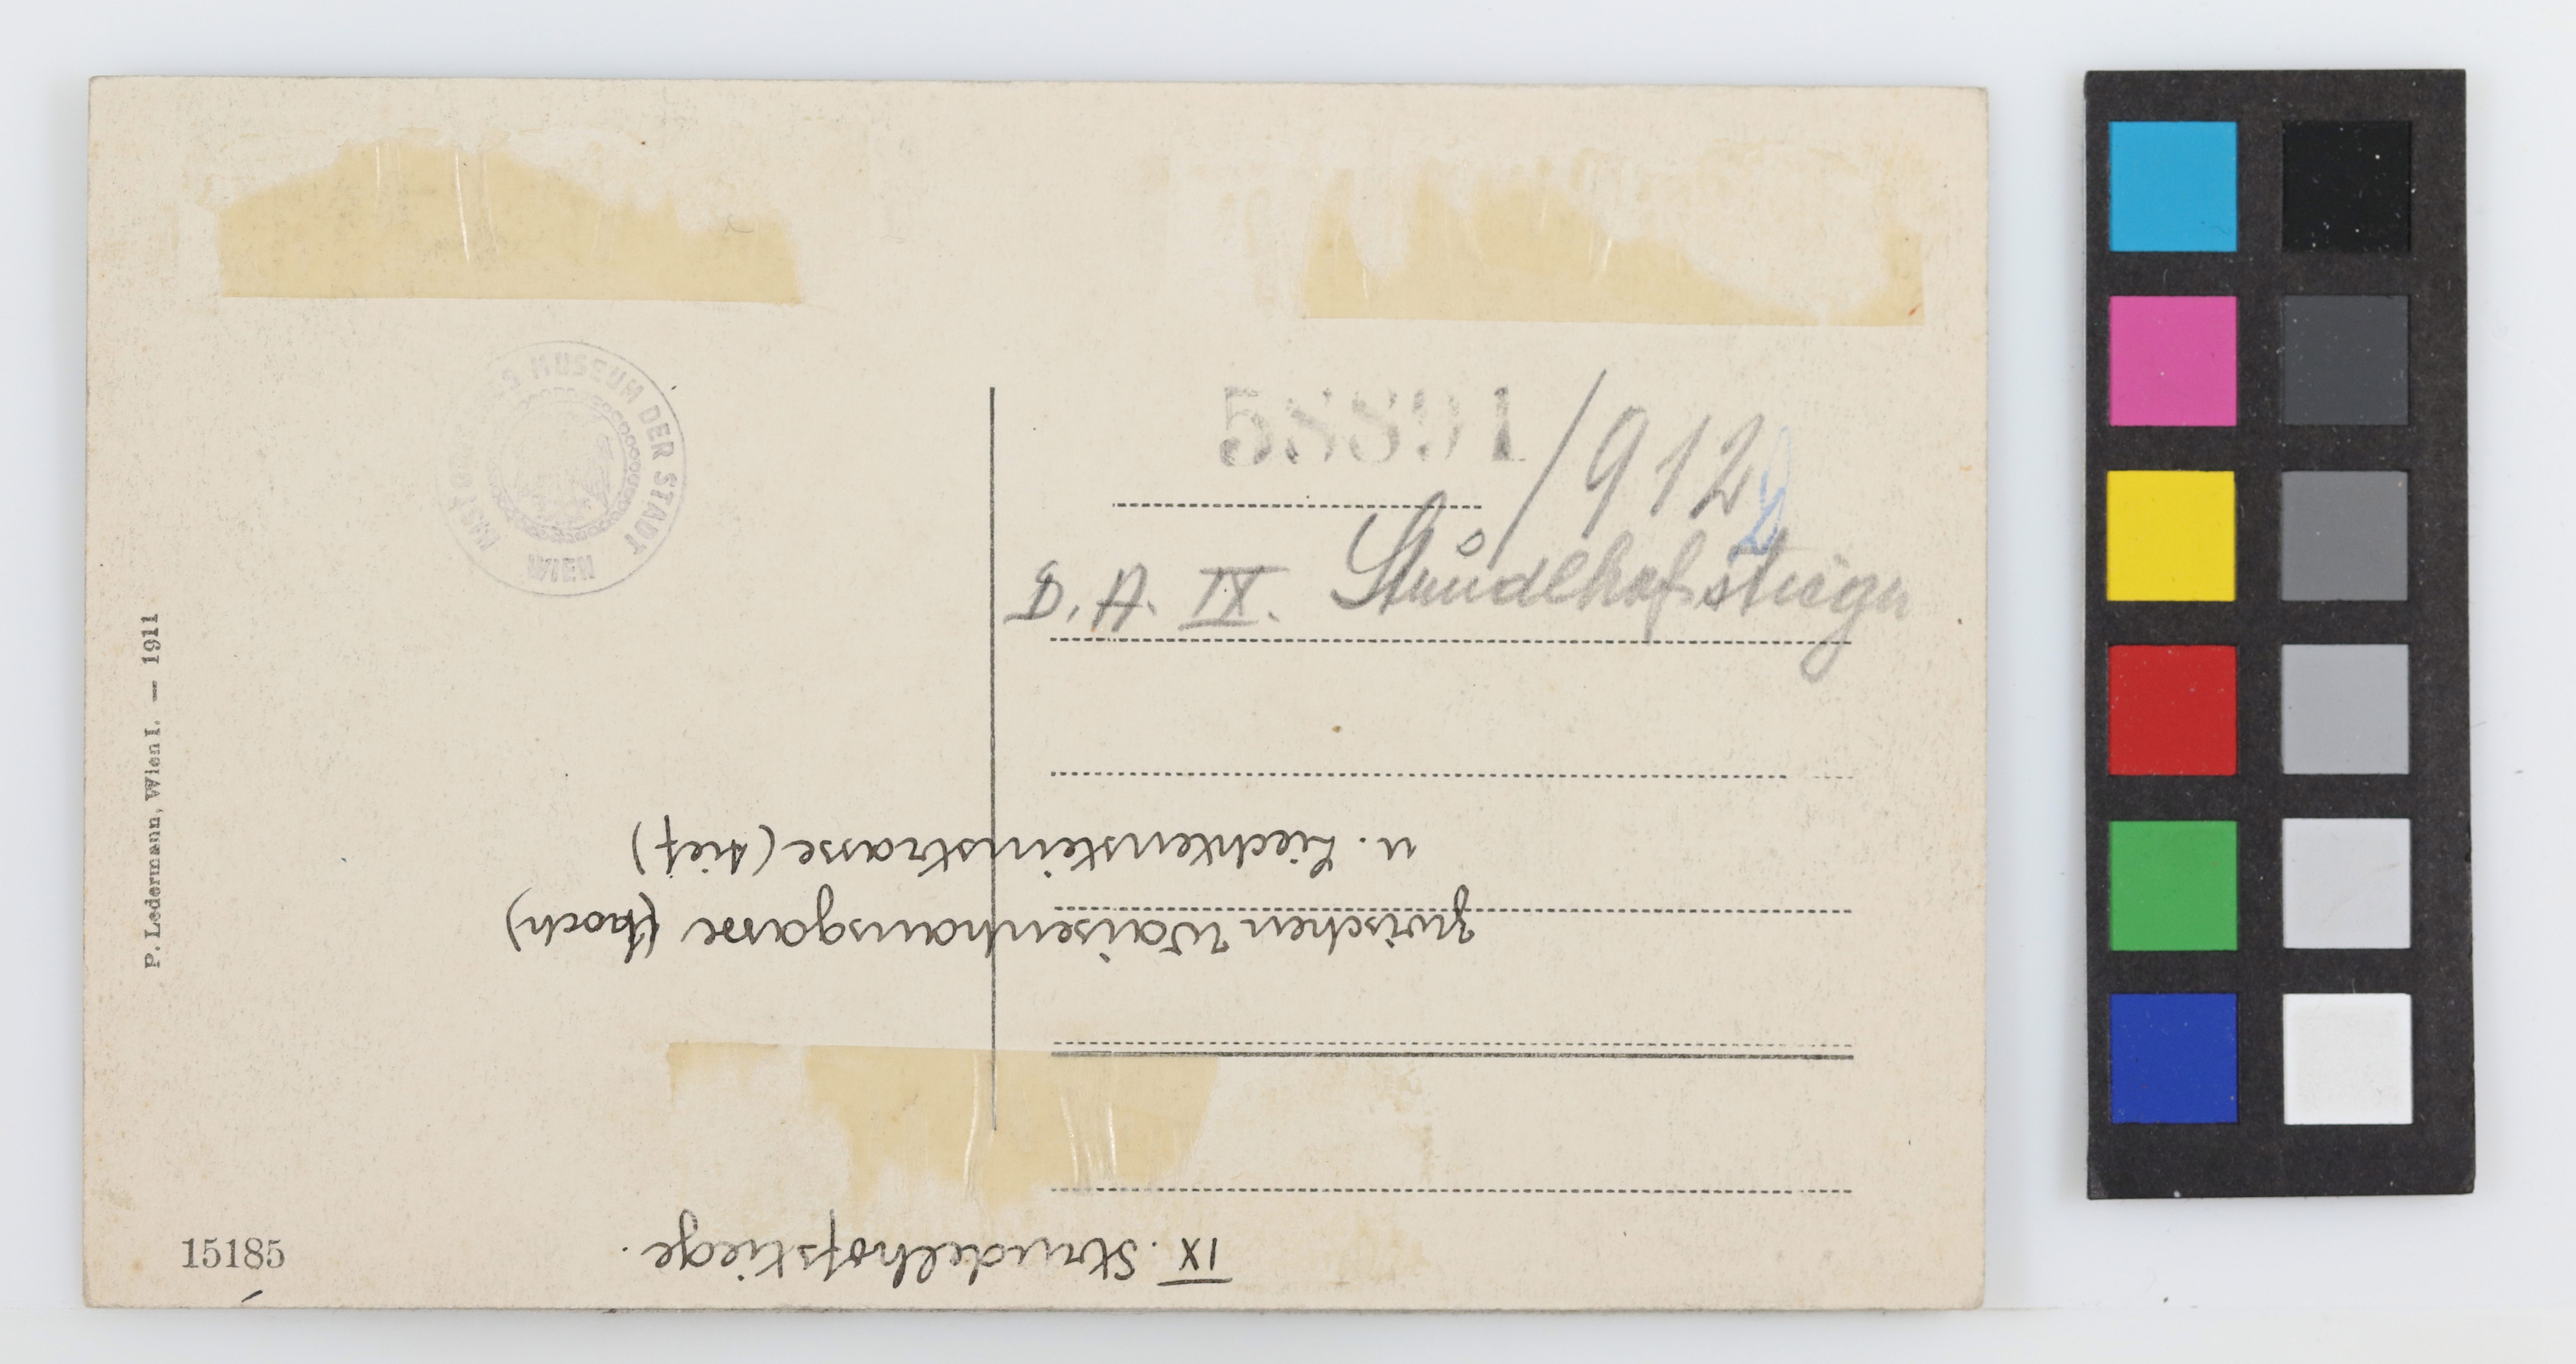 MUSEUM DER STADT
WIEN
58891/912
D. A. IX. Strudlhofstiege
P. Ledermann, Wien I. — 1911
15185
IX. Strudelhofstiege.
zwischen Waisenhausgasse (hoch)
u. Liechtensteinstrasse (tief)